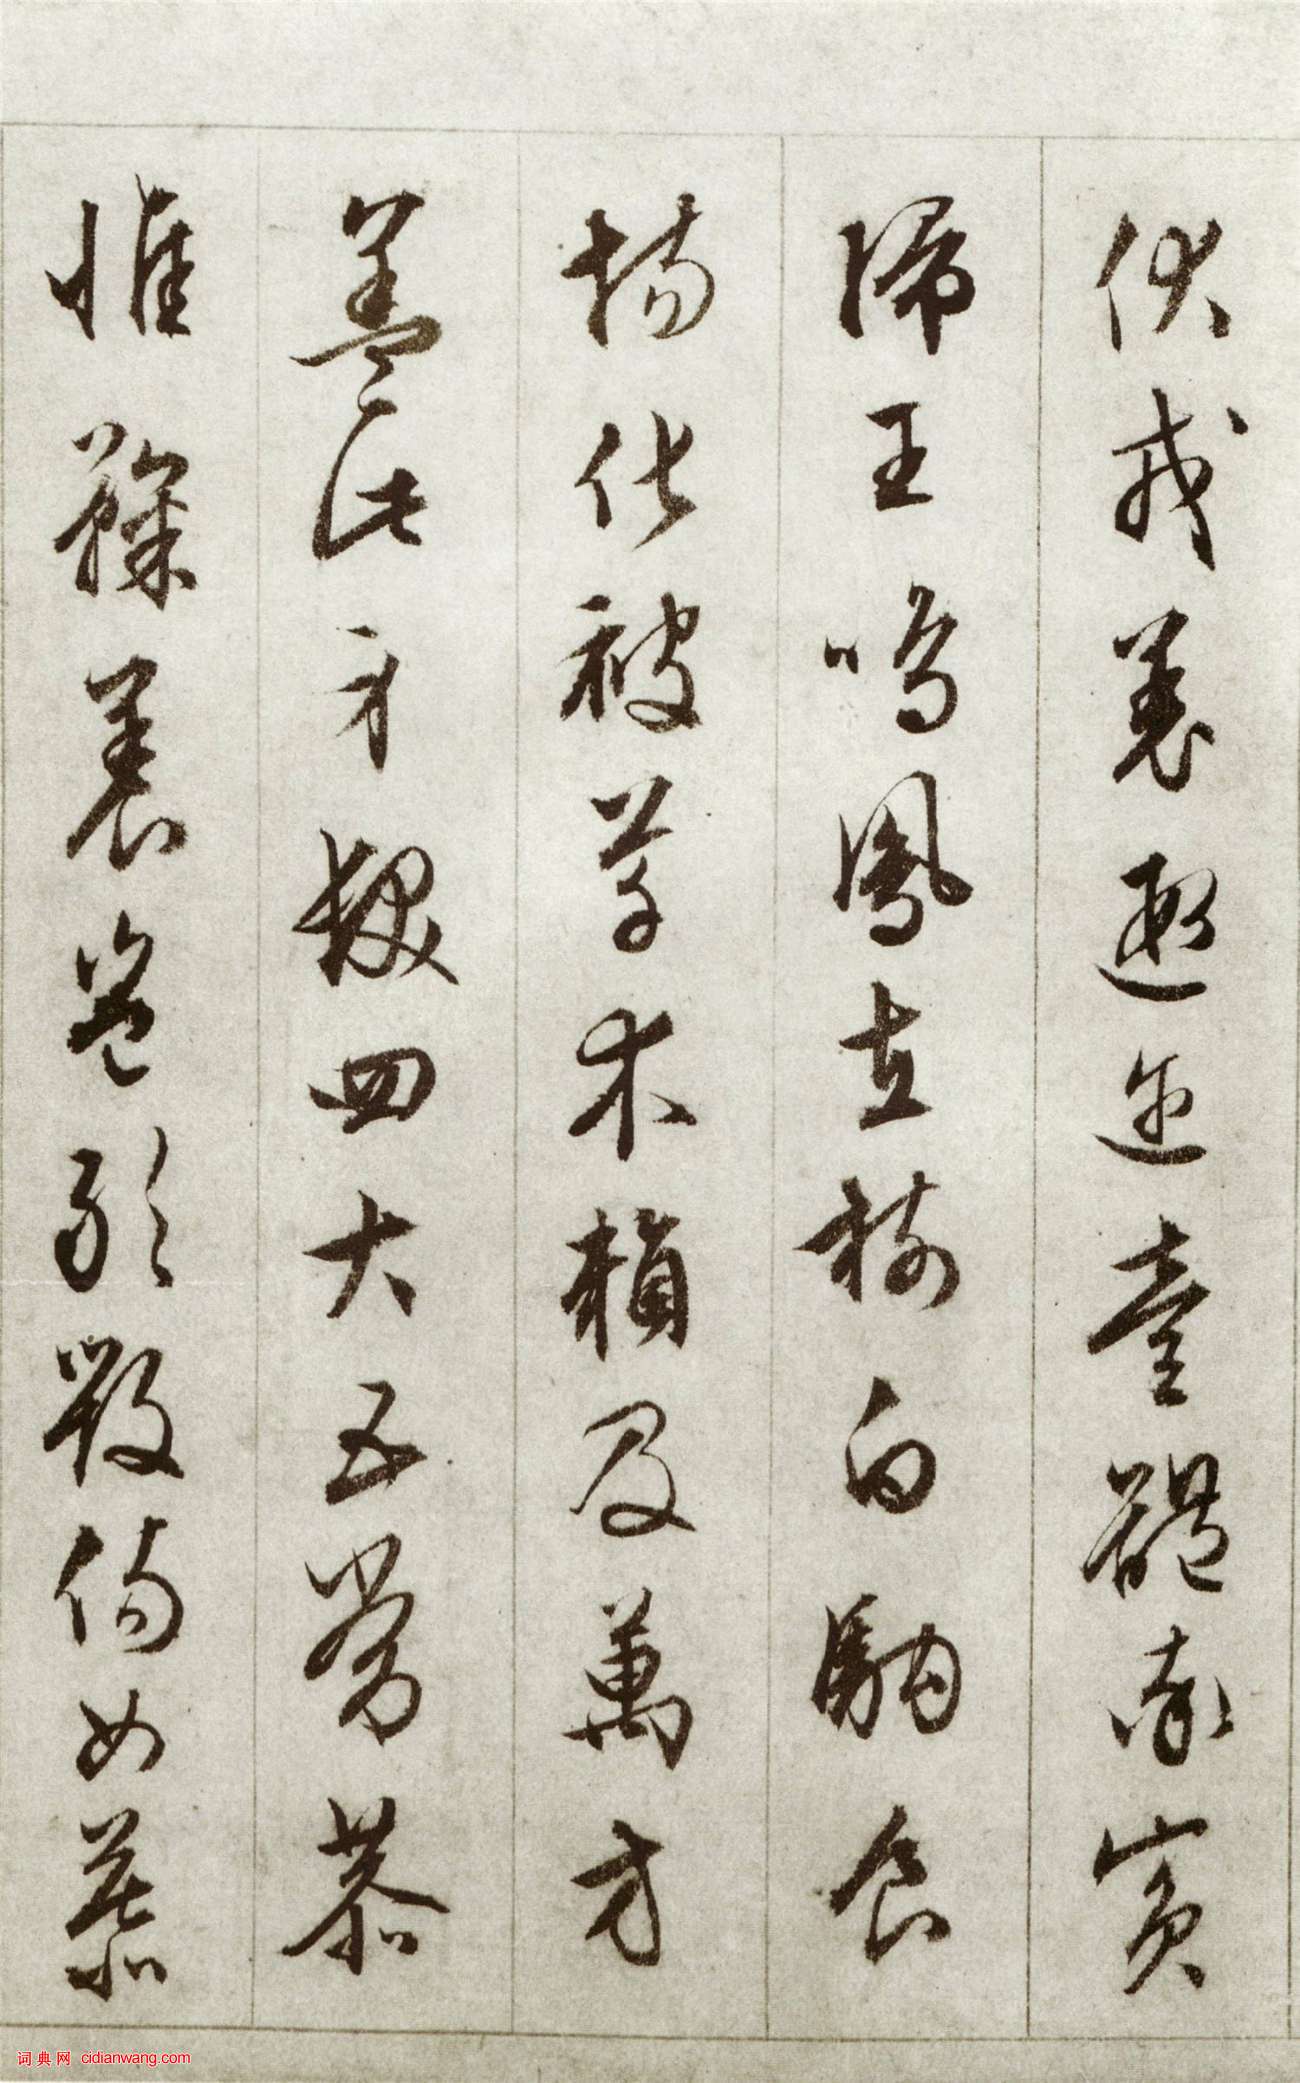 伏戎羌遐迩壹體率賓
歸王鳴鳳在樹白駒食
場化被草木賴及萬方
蓋此身髮四大五常恭
惟鞠養豈敢毀傷女慕
词典网 cidianwang.com